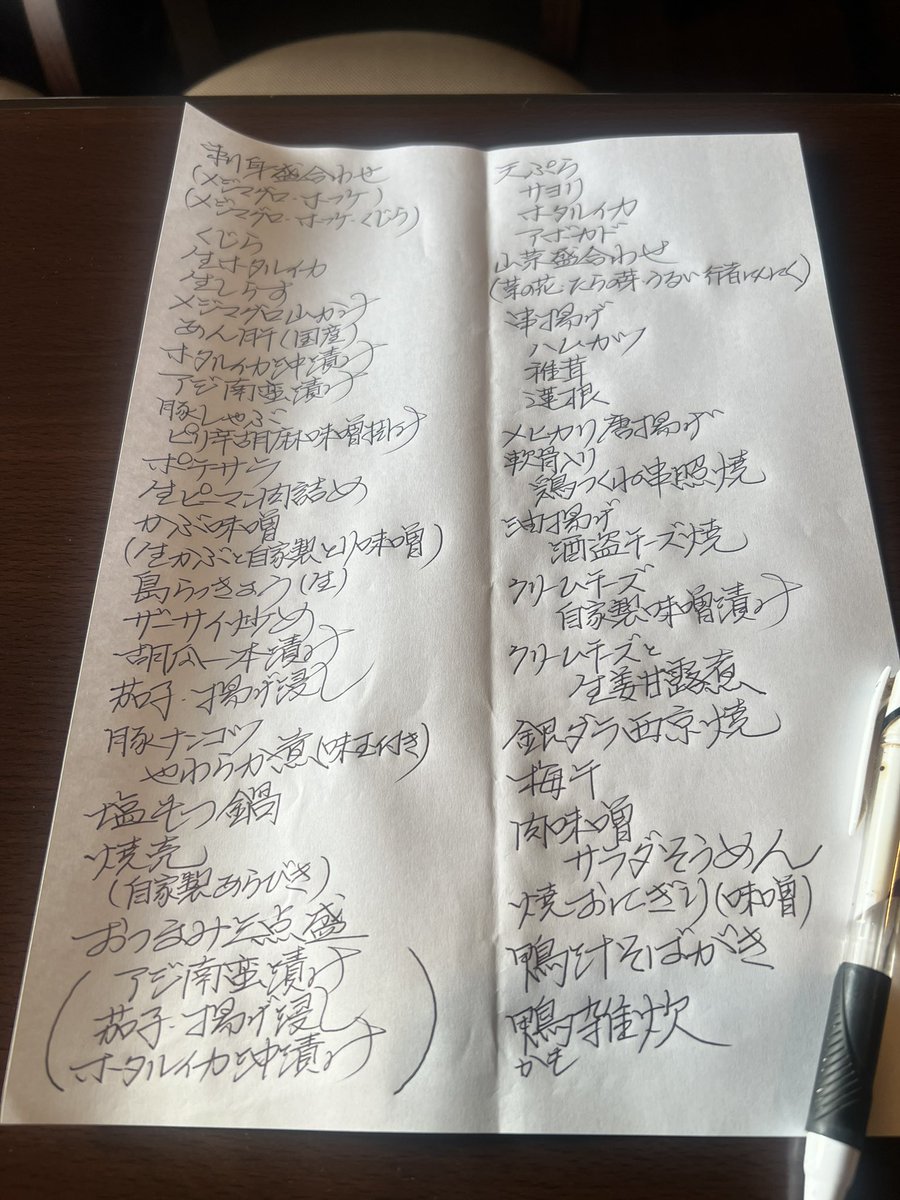 刺身盛合わせ
(メジマグロ・ホッケ)
(メジマグロ・ホッケ・くじら)
くじら
生ホタルイカ
生しらす
メジマグロ山かけ
あん肝(国産)
ホタルイカ沖漬け
アジ南蛮漬け
豚しゃぶ
ピリ辛胡麻味噌掛け
ポテサラ
生ピーマン肉詰め
かぶ味噌
(生かぶと自家製とり味噌)
島らっきょう(生)
ザーサイ炒め
胡瓜一本漬け
茄子・揚げ浸し
豚ナンコツ
やわらか煮(味玉付き)
塩もつ鍋
焼売
(自家製あらびき)
おつまみ三点盛
アジ南蛮漬け
茄子・揚げ浸し
ホタルイカ沖漬け
天ぷら
サヨリ
ホタルイカ
アボカド
山菜盛合わせ
(菜の花・たらの芽・うるい・行者にんにく)
串揚げ
ハムカツ
椎茸
蓮根
メヒカリ唐揚げ
軟骨入り
鶏つくね串照焼
油揚げ
酒盗チーズ焼
クリームチーズ
自家製味噌漬け
クリームチーズと
生姜甘露煮
銀ダラ西京焼
梅干
肉味噌
サラダそうめん
焼おにぎり(味噌)
鴨汁そばがき
鴨雑炊
かも